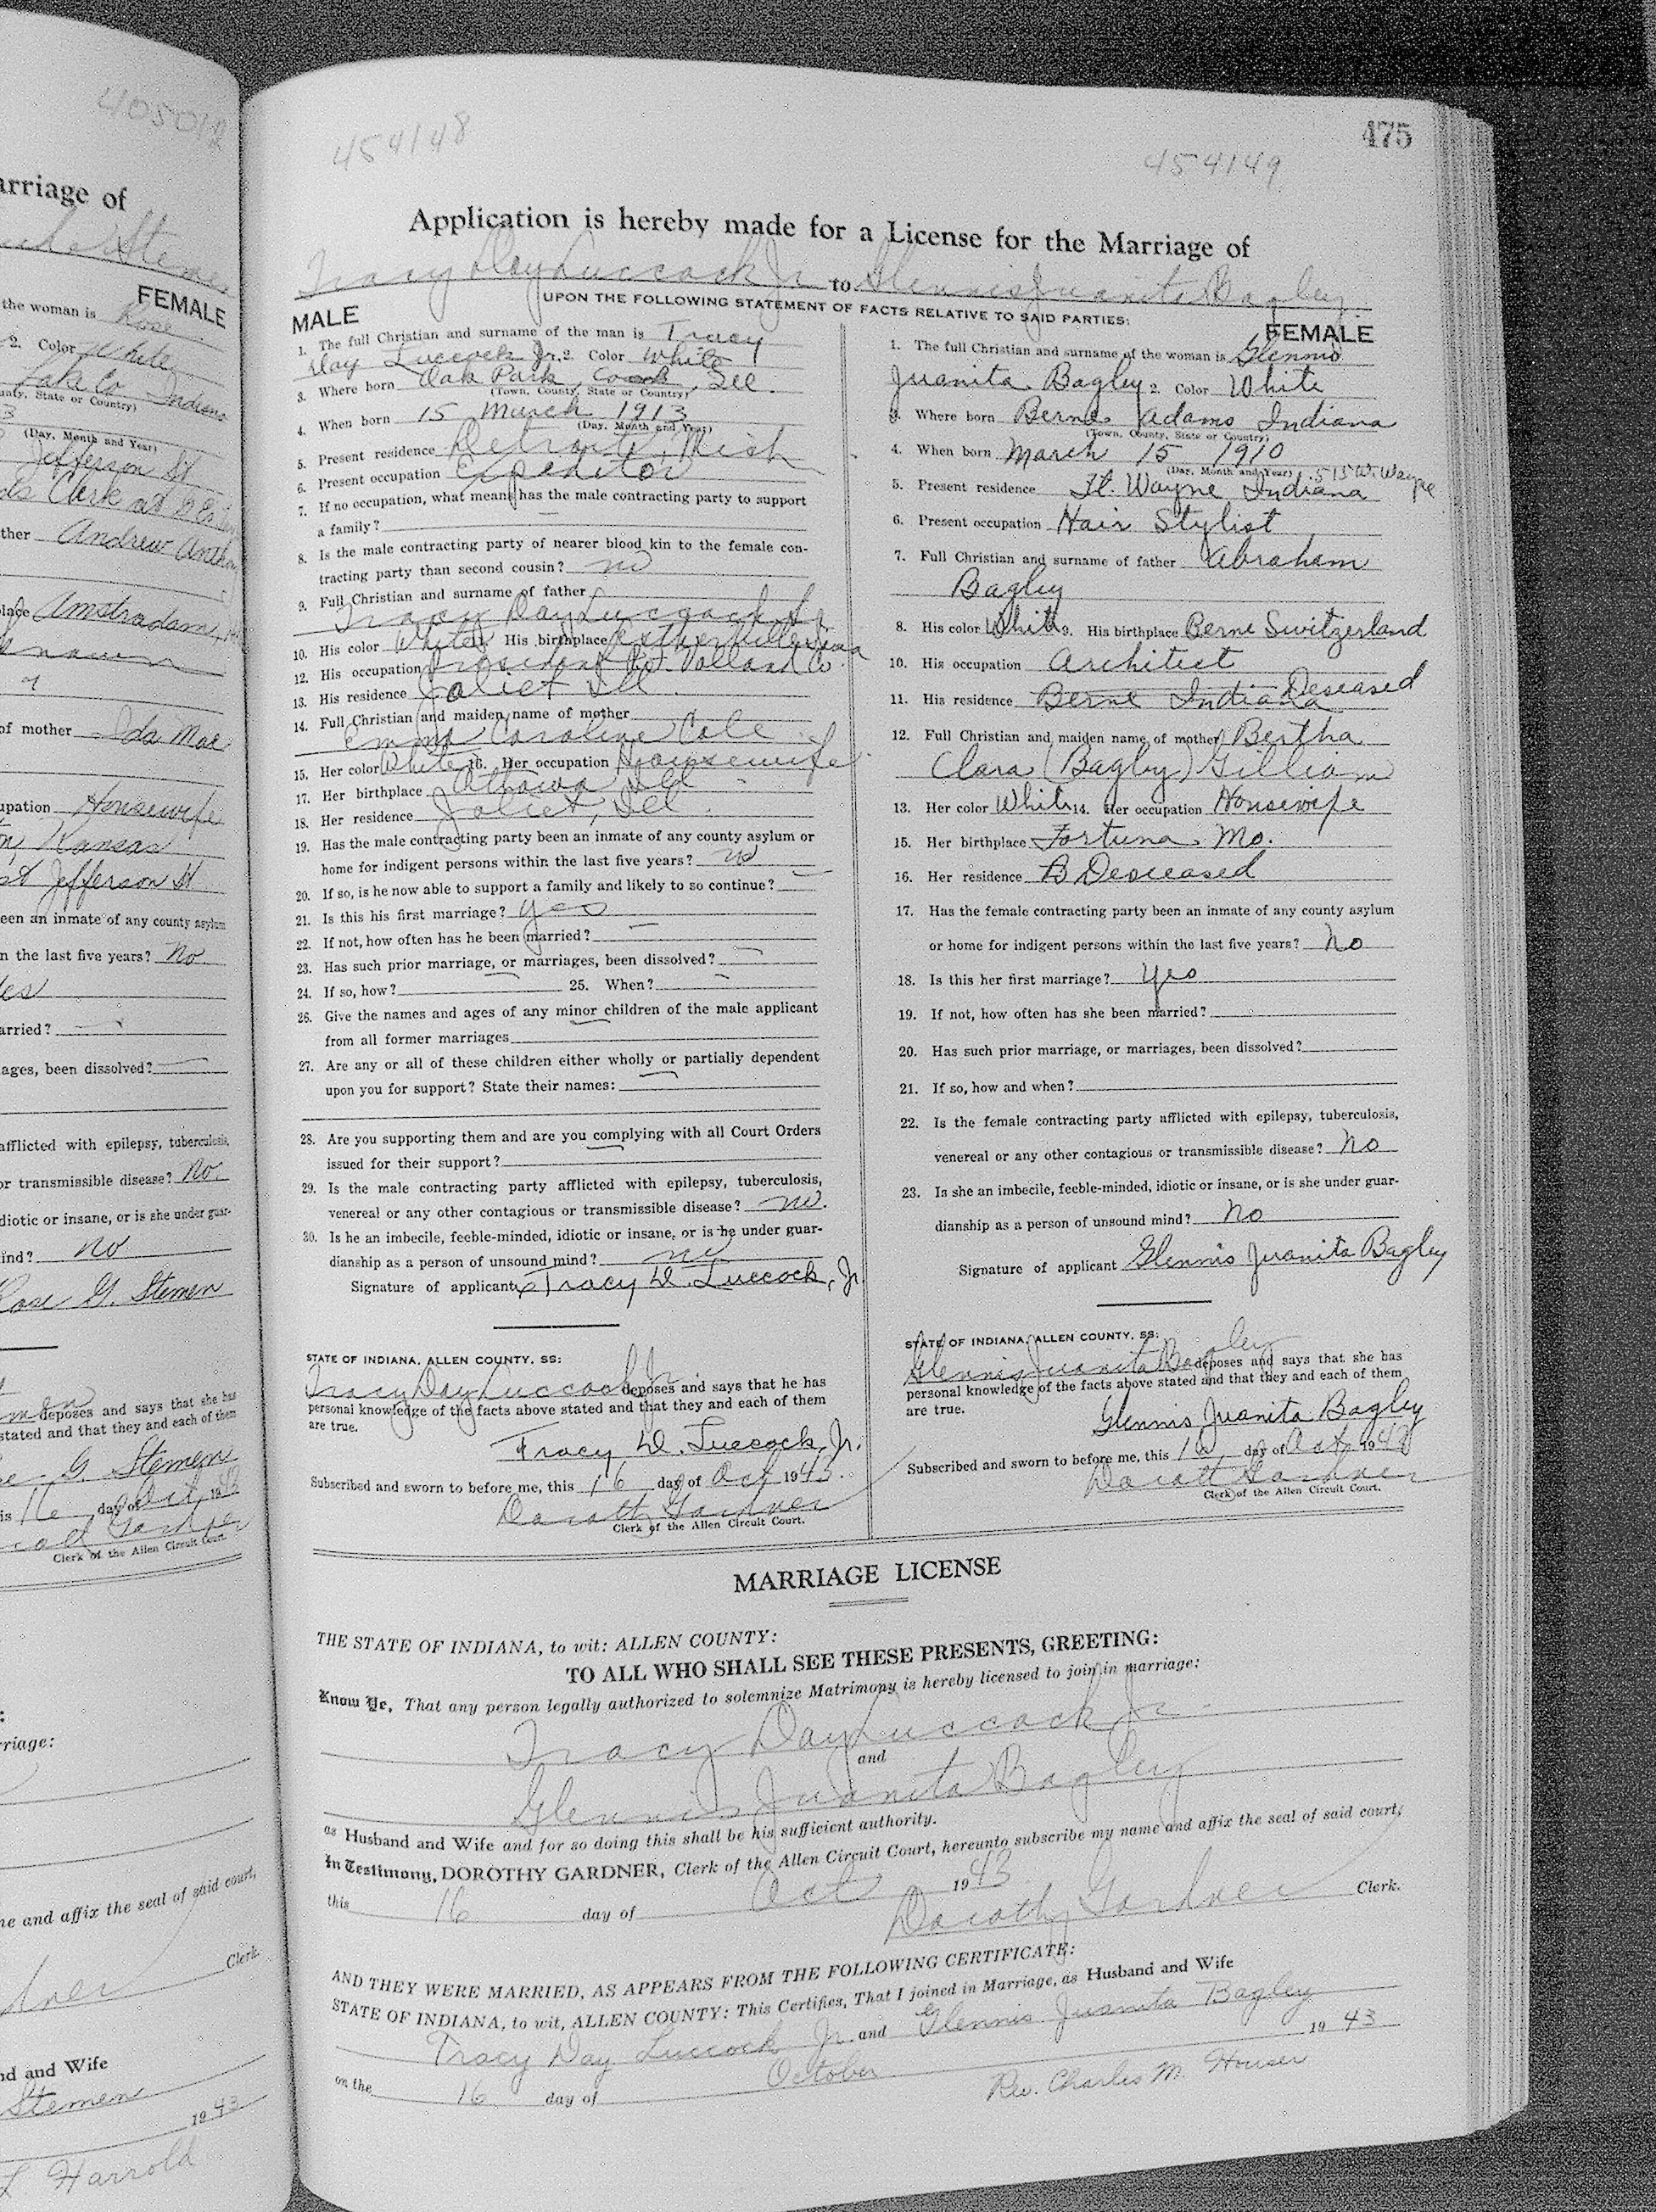 405012
arriage of
Steme
FEMALE
the woman is Rose
2. Color White
Lake Co Indiana
unty, State or Country)
3
(Day, Month and Year)
Jefferson St
Clerk at
ther Andrew
lace Amstradam,
nown
of mother Ida Mae
upation Housewife
Kansas
st Jefferson St
een an inmate of any county asylum
n the last five years? No
arried?
ages, been dissolved?
afflicted with epilepsy, tuberculosis,
or transmissible disease? No.
diotic or insane, or is she under guar-
ind? No
Rose G. Stemen
deposes and says that she has
stated and that they and each of them
G. Stemen
is 16 day of Oct 1943
Gardner
Clerk of the Allen Circuit Court.
:
rriage:
ne and affix the seal of said court,
Clerk.
nd and Wife
Stemen
1943
L Harrold
475
454148
454149
Application is hereby made for a License for the Marriage of
Tracy Day Luccock Jr to Glennis Juanita Bagley
UPON THE FOLLOWING STATEMENT OF FACTS RELATIVE TO SAID PARTIES:
MALE
1. The full Christian and surname of the man is Tracy
Day Luccock Jr. 2. Color White
3. Where born Oak Park, Cook, Ill.
(Town, County, State or Country)
4. When born 15 March 1913
(Day, Month and Year)
5. Present residence Detroit, Mich
6. Present occupation Expeditor
7. If no occupation, what means has the male contracting party to support
a family?
8. Is the male contracting party of nearer blood kin to the female con-
tracting party than second cousin? no
9. Full Christian and surname of father
Tracy Day Luccock Sr
10. His color White 11. His birthplace Estherville Iowa
12. His occupation President P.F. Volland Co.
13. His residence Joliet Ill
14. Full Christian and maiden name of mother
Emma Caroline Cole
15. Her color White 16. Her occupation Housewife
17. Her birthplace Ottawa Ill
18. Her residence Joliet, Ill.
19. Has the male contracting party been an inmate of any county asylum or
home for indigent persons within the last five years? no
20. If so, is he now able to support a family and likely to so continue?
21. Is this his first marriage? yes
22. If not, how often has he been married?
23. Has such prior marriage, or marriages, been dissolved?
24. If so, how? 25. When?
26. Give the names and ages of any minor children of the male applicant
from all former marriages
27. Are any or all of these children either wholly or partially dependent
upon you for support? State their names:
28. Are you supporting them and are you complying with all Court Orders
issued for their support?
29. Is the male contracting party afflicted with epilepsy, tuberculosis,
venereal or any other contagious or transmissible disease? no.
30. Is he an imbecile, feeble-minded, idiotic or insane, or is he under guar-
dianship as a person of unsound mind? no
Signature of applicant Tracy D. Luccock, Jr
STATE OF INDIANA, ALLEN COUNTY, SS:
Tracy Day Luccock Jr deposes and says that he has
personal knowledge of the facts above stated and that they and each of them
are true.
Tracy D. Luccock, Jr.
Subscribed and sworn to before me, this 16 day of Oct 1943.
Dorothy Gardner
Clerk of the Allen Circuit Court.
FEMALE
1. The full Christian and surname of the woman is Glennis
Juanita Bagley 2. Color White
3. Where born Berne Adams Indiana
(Town, County, State or Country)
4. When born March 15 1910
(Day, Month and Year) 515 W. Wayne
5. Present residence Ft. Wayne Indiana
6. Present occupation Hair Stylist
7. Full Christian and surname of father Abraham
Bagley
8. His color White 9. His birthplace Berne Switzerland
10. His occupation Architect
11. His residence Berne Indiana Deseased
12. Full Christian and maiden name of mother Bertha
Clara (Bagley) Gilliom
13. Her color White 14. Her occupation Housewife
15. Her birthplace Fortuna, Mo.
16. Her residence B Deseased
17. Has the female contracting party been an inmate of any county asylum
or home for indigent persons within the last five years? No
18. Is this her first marriage? Yes
19. If not, how often has she been married?
20. Has such prior marriage, or marriages, been dissolved?
21. If so, how and when?
22. Is the female contracting party afflicted with epilepsy, tuberculosis,
venereal or any other contagious or transmissible disease? No
23. Is she an imbecile, feeble-minded, idiotic or insane, or is she under guar-
dianship as a person of unsound mind? No
Signature of applicant Glennis Juanita Bagley
STATE OF INDIANA, ALLEN COUNTY, SS:
Glennis Juanita Bagley deposes and says that she has
personal knowledge of the facts above stated and that they and each of them
are true.
Glennis Juanita Bagley
Subscribed and sworn to before me, this 16 day of Oct 1943
Dorothy Gardner
Clerk of the Allen Circuit Court.
MARRIAGE LICENSE
THE STATE OF INDIANA, to wit: ALLEN COUNTY:
TO ALL WHO SHALL SEE THESE PRESENTS, GREETING:
Know Ye, That any person legally authorized to solemnize Matrimony is hereby licensed to join in marriage:
Tracy Day Luccock Jr.
and
Glennis Juanita Bagley
as Husband and Wife and for so doing this shall be his sufficient authority.
In Testimony, DOROTHY GARDNER, Clerk of the Allen Circuit Court, hereunto subscribe my name and affix the seal of said court,
this 16 day of Oct 1943
Dorothy Gardner Clerk.
AND THEY WERE MARRIED, AS APPEARS FROM THE FOLLOWING CERTIFICATE:
STATE OF INDIANA, to wit, ALLEN COUNTY: This Certifies, That I joined in Marriage, as Husband and Wife
Tracy Day Luccock Jr. and Glennis Juanita Bagley
on the 16 day of October 1943
Rev. Charles M. Houser